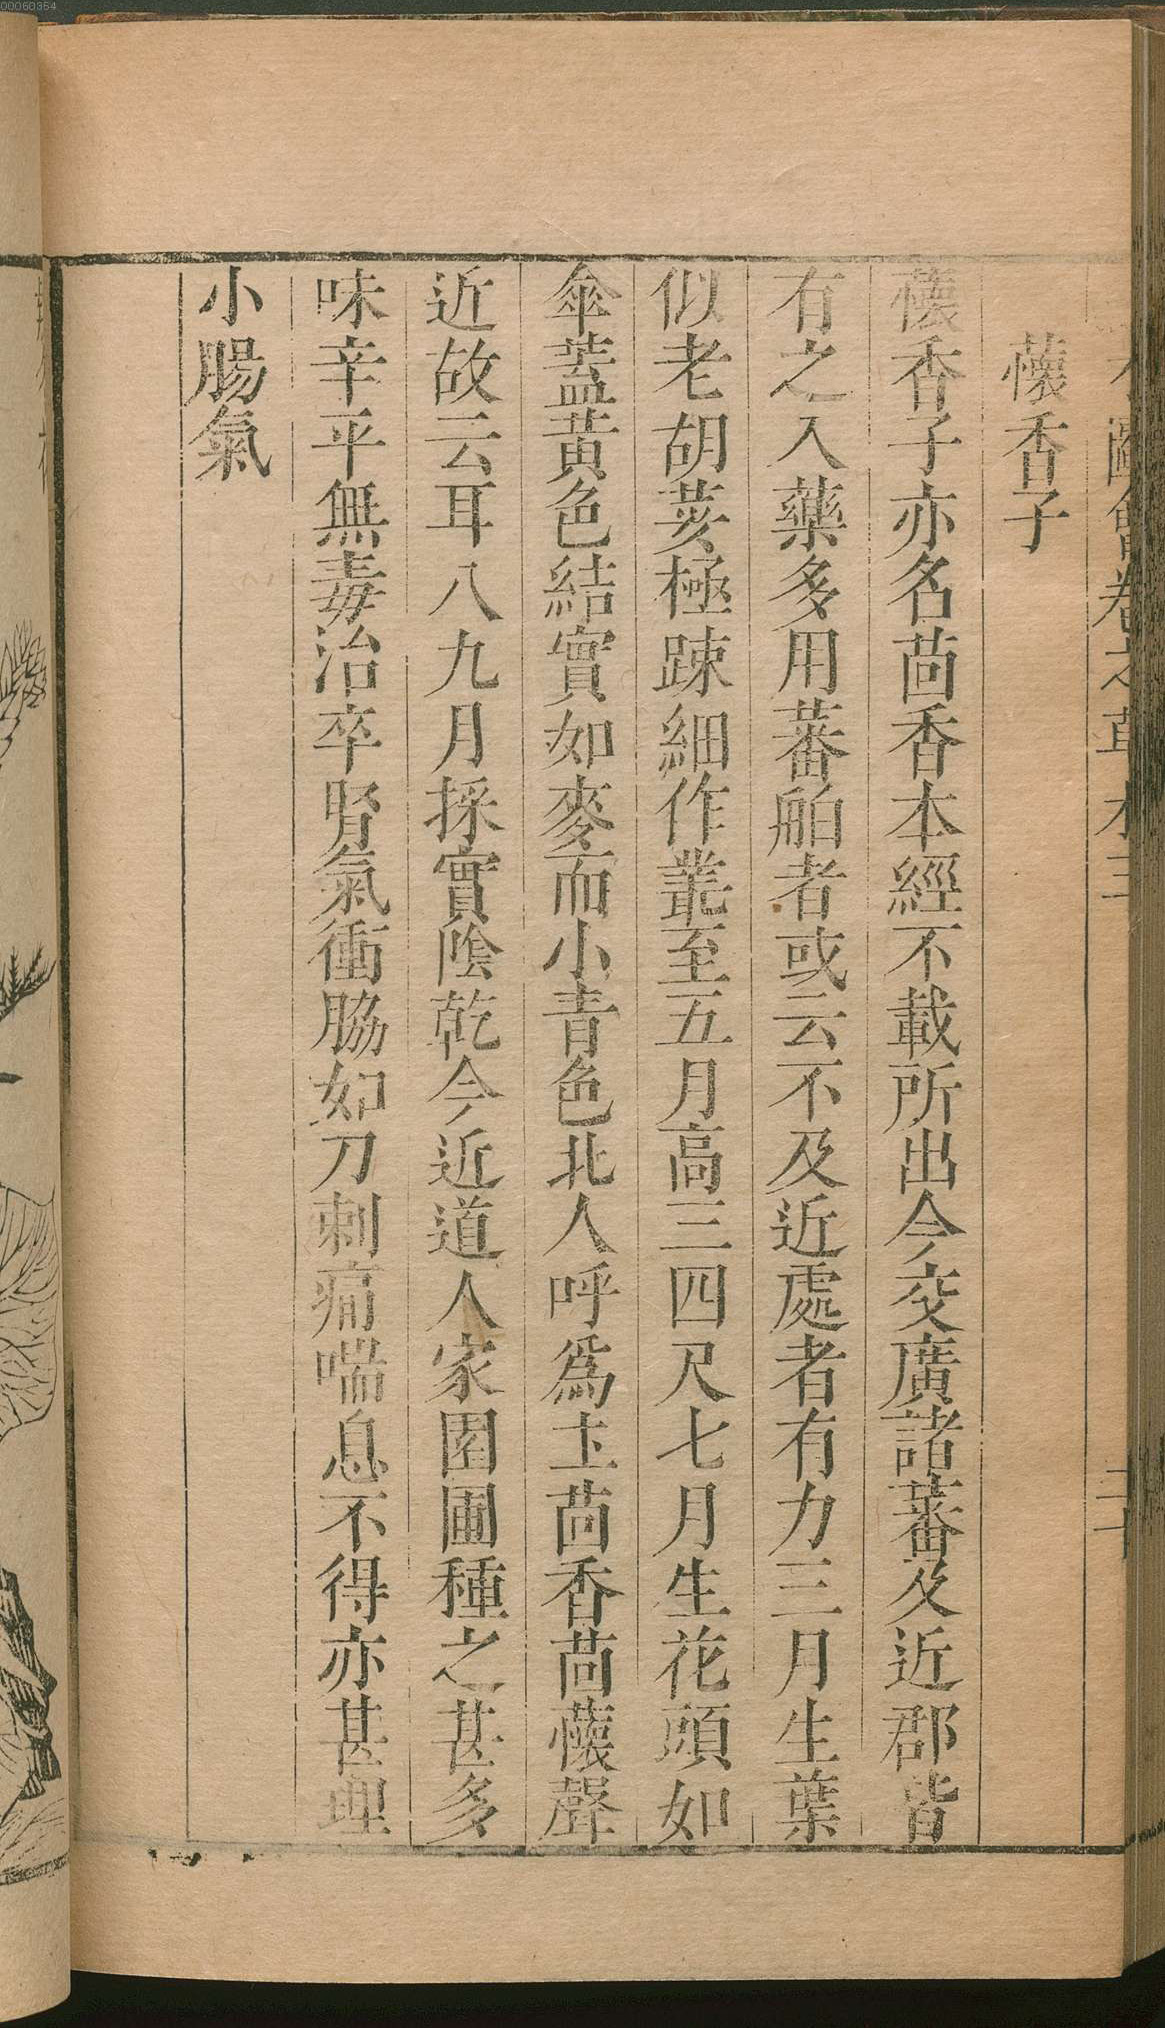 00060354
圖會卷之草木三
蘹香子
蘹香子亦名茴香本經不載所出今交廣諸蕃及近郡皆
有之入藥多用蕃舶者或云不及近處者有力三月生葉
似老胡荽極踈細作叢至五月高三四尺七月生花頭如
傘蓋黃色結實如麥而小青色北人呼為土茴香茴蘹聲
近故云耳八九月採實陰乾今近道人家園圃種之甚多
味辛平無毒治卒腎氣衝脇如刀刺痛喘息不得亦甚理
小腸氣